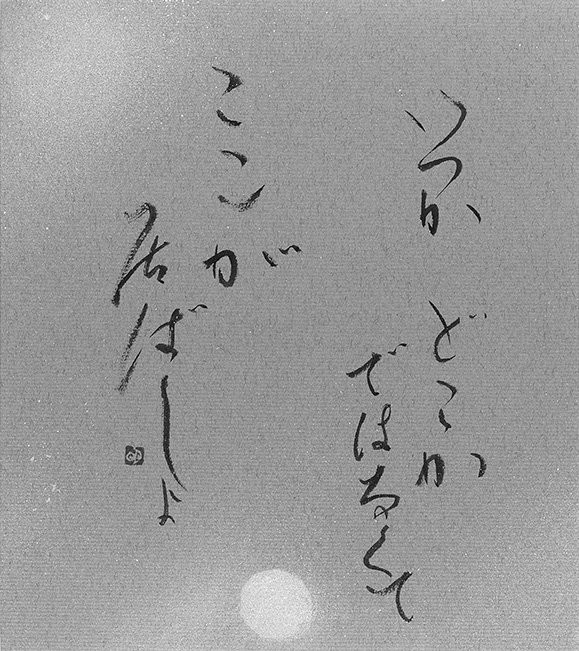 いつか どこか
ではなくて
ここが
居ばしよ